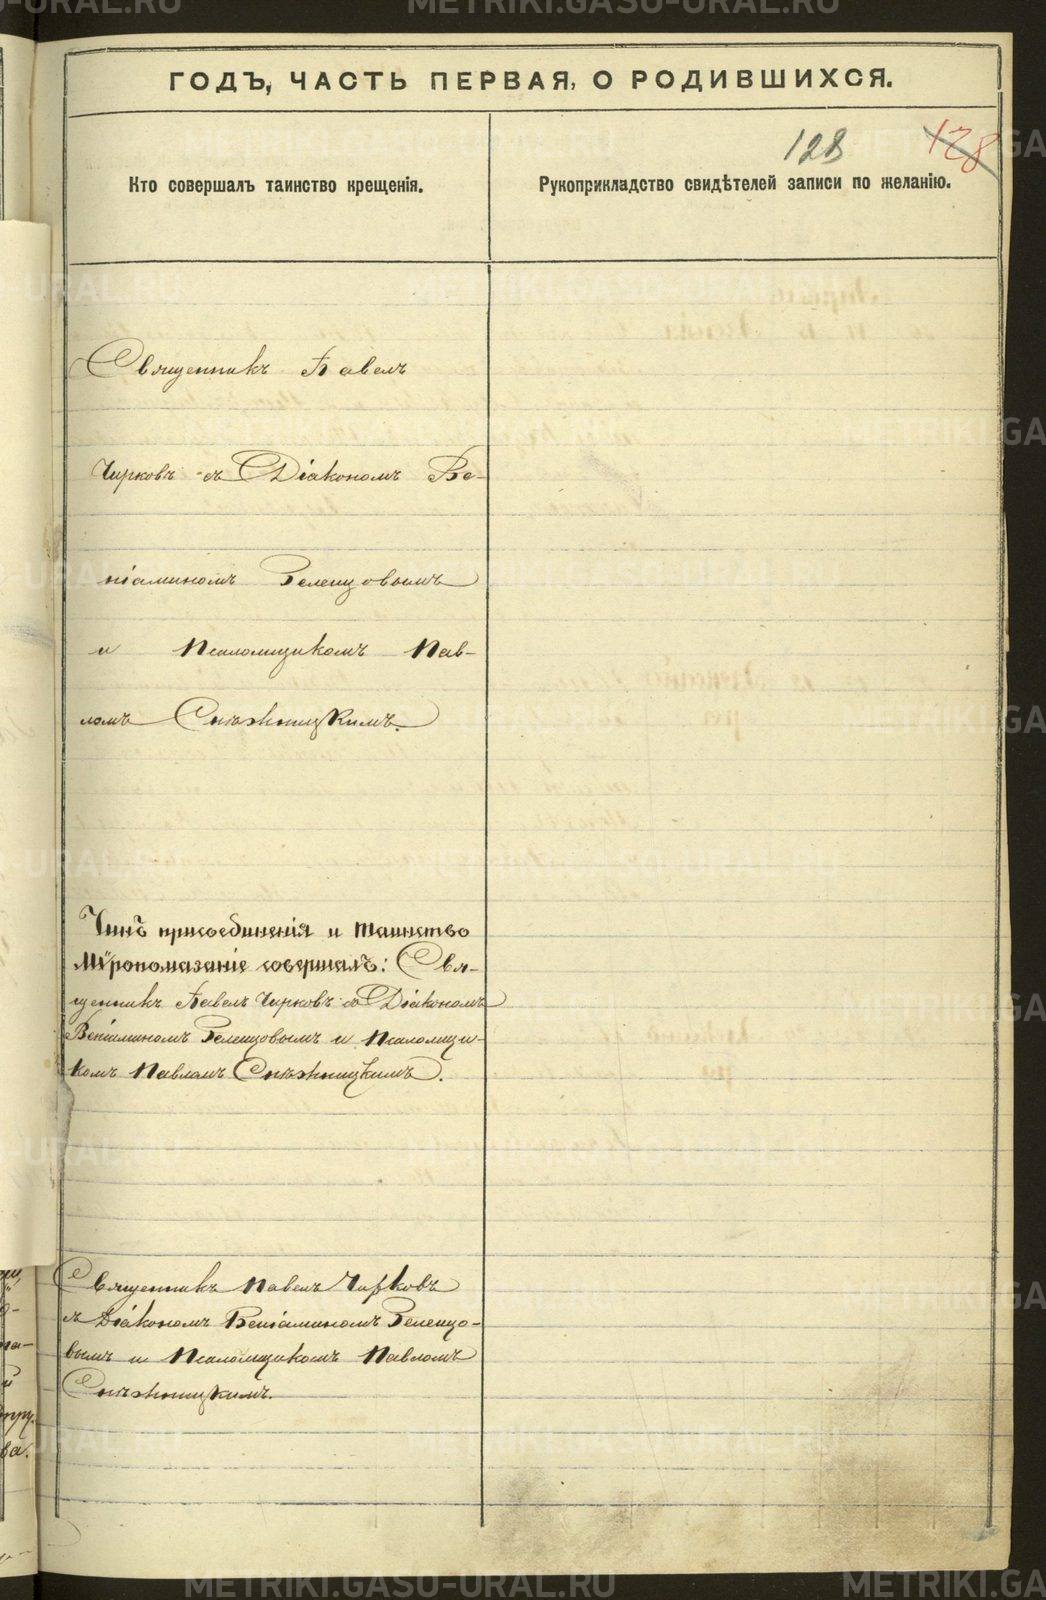 ГОДЪ, ЧАСТЬ ПЕРВАЯ, О РОДИВШИХСЯ.
128 128
Кто совершалъ таинство крещенія.
Рукоприкладство свидѣтелей записи по желанію.
Священникъ Павелъ
Чирковъ съ Діакономъ Ве-
ніаминомъ Зеленцовымъ
и Псаломщикомъ Пав-
ломъ Снѣжницкимъ.
Чинъ присоединенія и таинство
Мѵропомазаніе совершалъ: Свя-
щенникъ Павелъ Чирковъ съ Діакономъ
Веніаминомъ Зеленцовымъ и Псаломщи-
комъ Павломъ Снѣжницкимъ.
Священникъ Павелъ Чирковъ
съ Діакономъ Веніаминомъ Зеленцо-
вымъ и Псаломщикомъ Павломъ
Снѣжницкимъ.
METRIKI.GASO-URAL.RU